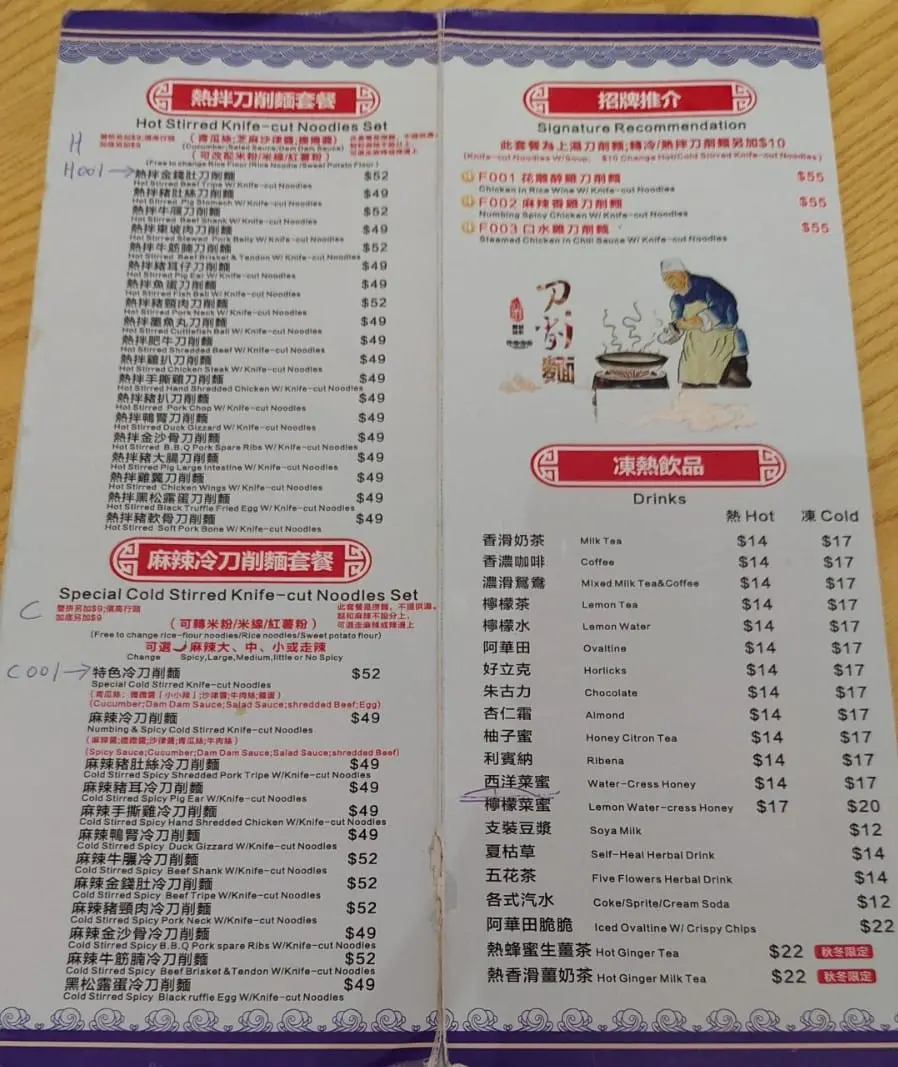 熱拌刀削麵套餐
Hot Stirred Knife-cut Noodles Set
H
(青瓜絲;芝麻沙律醬;擔擔醬)
(Cucumber;Salad Sauce;Dam Dam Sauce)
(可改配米粉/米線/紅薯粉)
(Free to change Rice Flour/Rice Noodle/Sweet Potato Flour)
H001→
熱拌金錢肚刀削麵 $52
Hot Stirred Beef Tripe W/Knife-cut Noodles
熱拌豬肚絲刀削麵 $49
Hot Stirred Pig Stomach W/Knife-cut Noodles
熱拌牛𦟌刀削麵 $52
Hot Stirred Beef Shank W/Knife-cut Noodles
熱拌東坡肉刀削麵 $49
Hot Stirred Stewed Pork Belly W/Knife-cut Noodles
熱拌牛筋腩刀削麵 $52
Hot Stirred Beef Brisket & Tendon W/Knife-cut Noodles
熱拌豬耳仔刀削麵 $49
Hot Stirred Pig Ear W/Knife-cut Noodles
熱拌魚蛋刀削麵 $49
Hot Stirred Fish Ball W/Knife-cut Noodles
熱拌豬頸肉刀削麵 $52
Hot Stirred Pork Neck W/Knife-cut Noodles
熱拌墨魚丸刀削麵 $49
Hot Stirred Cuttlefish Ball W/Knife-cut Noodles
熱拌肥牛刀削麵 $49
Hot Stirred Shredded Beef W/Knife-cut Noodles
熱拌雞扒刀削麵 $49
Hot Stirred Chicken Steak W/Knife-cut Noodles
熱拌手撕雞刀削麵 $49
Hot Stirred Hand Shredded Chicken W/Knife-cut Noodles
熱拌豬扒刀削麵 $49
Hot Stirred Pork Chop W/Knife-cut Noodles
熱拌鴨腎刀削麵 $49
Hot Stirred Duck Gizzard W/Knife-cut Noodles
熱拌金沙骨刀削麵 $49
Hot Stirred B.B.Q Pork Spare Ribs W/Knife-cut Noodles
熱拌豬大腸刀削麵 $49
Hot Stirred Pig Large Intestine W/Knife-cut Noodles
熱拌雞翼刀削麵 $49
Hot Stirred Chicken Wings W/Knife-cut Noodles
熱拌黑松露蛋刀削麵 $49
Hot Stirred Black Truffle Fried Egg W/Knife-cut Noodles
熱拌豬軟骨刀削麵 $49
Hot Stirred Soft Pork Bone W/Knife-cut Noodles
麻辣冷刀削麵套餐
Special Cold Stirred Knife-cut Noodles Set
C
雙拼另加$9;價高行頭
加底另加$9
此套餐是撈麵,不提供湯。
(可轉米粉/米線/紅薯粉)
(Free to change rice-flour noodles/Rice noodles/Sweet potato flour)
可選 麻辣大、中、小或走辣
Change Spicy,Large,Medium,little or No Spicy
C001→
特色冷刀削麵 $52
Special Cold Stirred Knife-cut Noodles
(Cucumber;Dam Dam Sauce;Salad Sauce;shredded Beef;Egg)
麻辣冷刀削麵 $49
Numbing & Spicy Cold Stirred Knife-cut Noodles
(麻辣醬;擔擔醬;沙律醬;青瓜絲;牛肉絲)
(Spicy Sauce;Cucumber;Dam Dam Sauce;Salad Sauce;shredded Beef)
麻辣豬肚絲冷刀削麵 $49
Cold Stirred Spicy Shredded Pork Tripe W/Knife-cut Noodles
麻辣豬耳冷刀削麵 $49
Cold Stirred Spicy Pig Ear W/Knife-cut Noodles
麻辣手撕雞冷刀削麵 $49
Cold Stirred Spicy Hand Shredded Chicken W/Knife-cut Noodles
麻辣鴨腎冷刀削麵 $49
Cold Stirred Spicy Duck Gizzard W/Knife-cut Noodles
麻辣牛𦟌冷刀削麵 $52
Cold Stirred Spicy Beef Shank W/Knife-cut Noodles
麻辣金錢肚冷刀削麵 $52
Cold Stirred Spicy Beef Tripe W/Knife-cut Noodles
麻辣豬頸肉冷刀削麵 $52
Cold Stirred Spicy Pork Neck W/Knife-cut Noodles
麻辣金沙骨冷刀削麵 $49
Cold Stirred Spicy B.B.Q Pork spare Ribs W/Knife-cut Noodles
麻辣牛筋腩冷刀削麵 $52
Cold Stirred Spicy Beef Brisket &Tendon W/Knife-cut Noodles
黑松露蛋冷刀削麵 $49
Cold Stirred Spicy Black ruffle Egg W/Knife-cut Noodles
招牌推介
Signature Recommendation
此套餐為上湯刀削麵;轉冷/熱拌刀削麵另加$10
(Knife-cut Noodles W/Soup; $10 Change Hot/Cold Stirred Knife-cut Noodles)
F001 花雕醉雞刀削麵 $55
Chicken In Rice Wine W/Knife-cut Noodles
F002 麻辣香雞刀削麵 $55
Numbing Spicy Chicken W/Knife-cut Noodles
F003 口水雞刀削麵 $55
Steamed Chicken in Chili Sauce W/Knife-cut Noodles
刀削麵
凍熱飲品
Drinks
熱 Hot 凍 Cold
香滑奶茶 Milk Tea $14 $17
香濃咖啡 Coffee $14 $17
濃滑鴛鴦 Mixed Milk Tea&Coffee $14 $17
檸檬茶 Lemon Tea $14 $17
檸檬水 Lemon Water $14 $17
阿華田 Ovaltine $14 $17
好立克 Horlicks $14 $17
朱古力 Chocolate $14 $17
杏仁霜 Almond $14 $17
柚子蜜 Honey Citron Tea $14 $17
利賓納 Ribena $14 $17
西洋菜蜜 Water-Cress Honey $14 $17
檸檬菜蜜 Lemon Water-cress Honey $17 $20
支裝豆漿 Soya Milk $12
夏枯草 Self-Heal Herbal Drink $14
五花茶 Five Flowers Herbal Drink $14
各式汽水 Coke/Sprite/Cream Soda $12
阿華田脆脆 Iced Ovaltine W/ Crispy Chips $22
熱蜂蜜生薑茶 Hot Ginger Tea $22 秋冬限定
熱香滑薑奶茶 Hot Ginger Milk Tea $22 秋冬限定